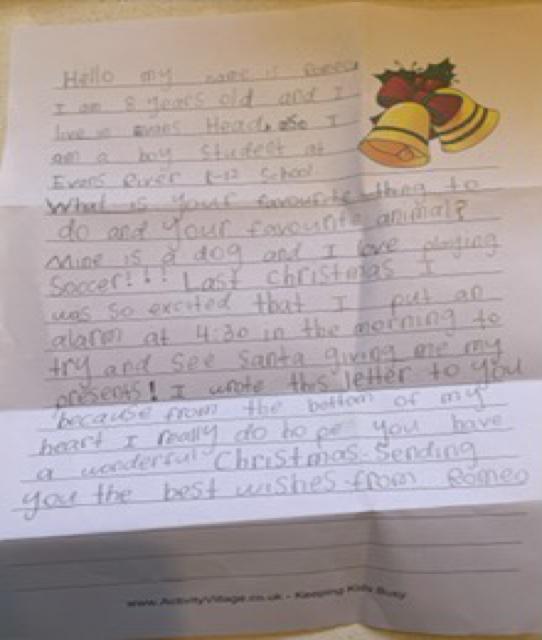 Hello my name is Romeo
I am 8 years old and I
live in Evans Head, so I
am a boy student at
Evans River K-12 School
What is your favourite thing to
do and your favourite animal?
Mine is a dog and I love playing
Soccer!!! Last christmas I
was so excited that I put an
alarm at 4:30 in the morning to
try and see Santa giving me my
presents! I wrote this letter to you
because from the bottom of my
heart I really do hope you have
a wonderful Christmas. Sending
you the best wishes from Romeo
www.ActivityVillage.co.uk - Keeping Kids Busy